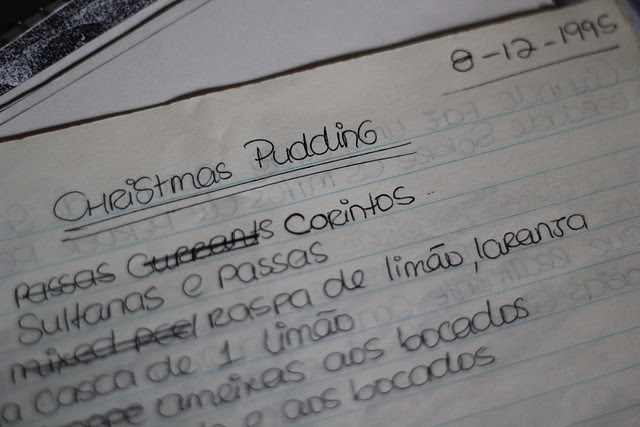 8-12-1995
CHRistmas PuddinG
Passas Currants CORintos
Sultanas e Passas
mixed peel Raspa de limão, laranja
a casca de 1 limão
ameixas aos bocados
e aos bocados